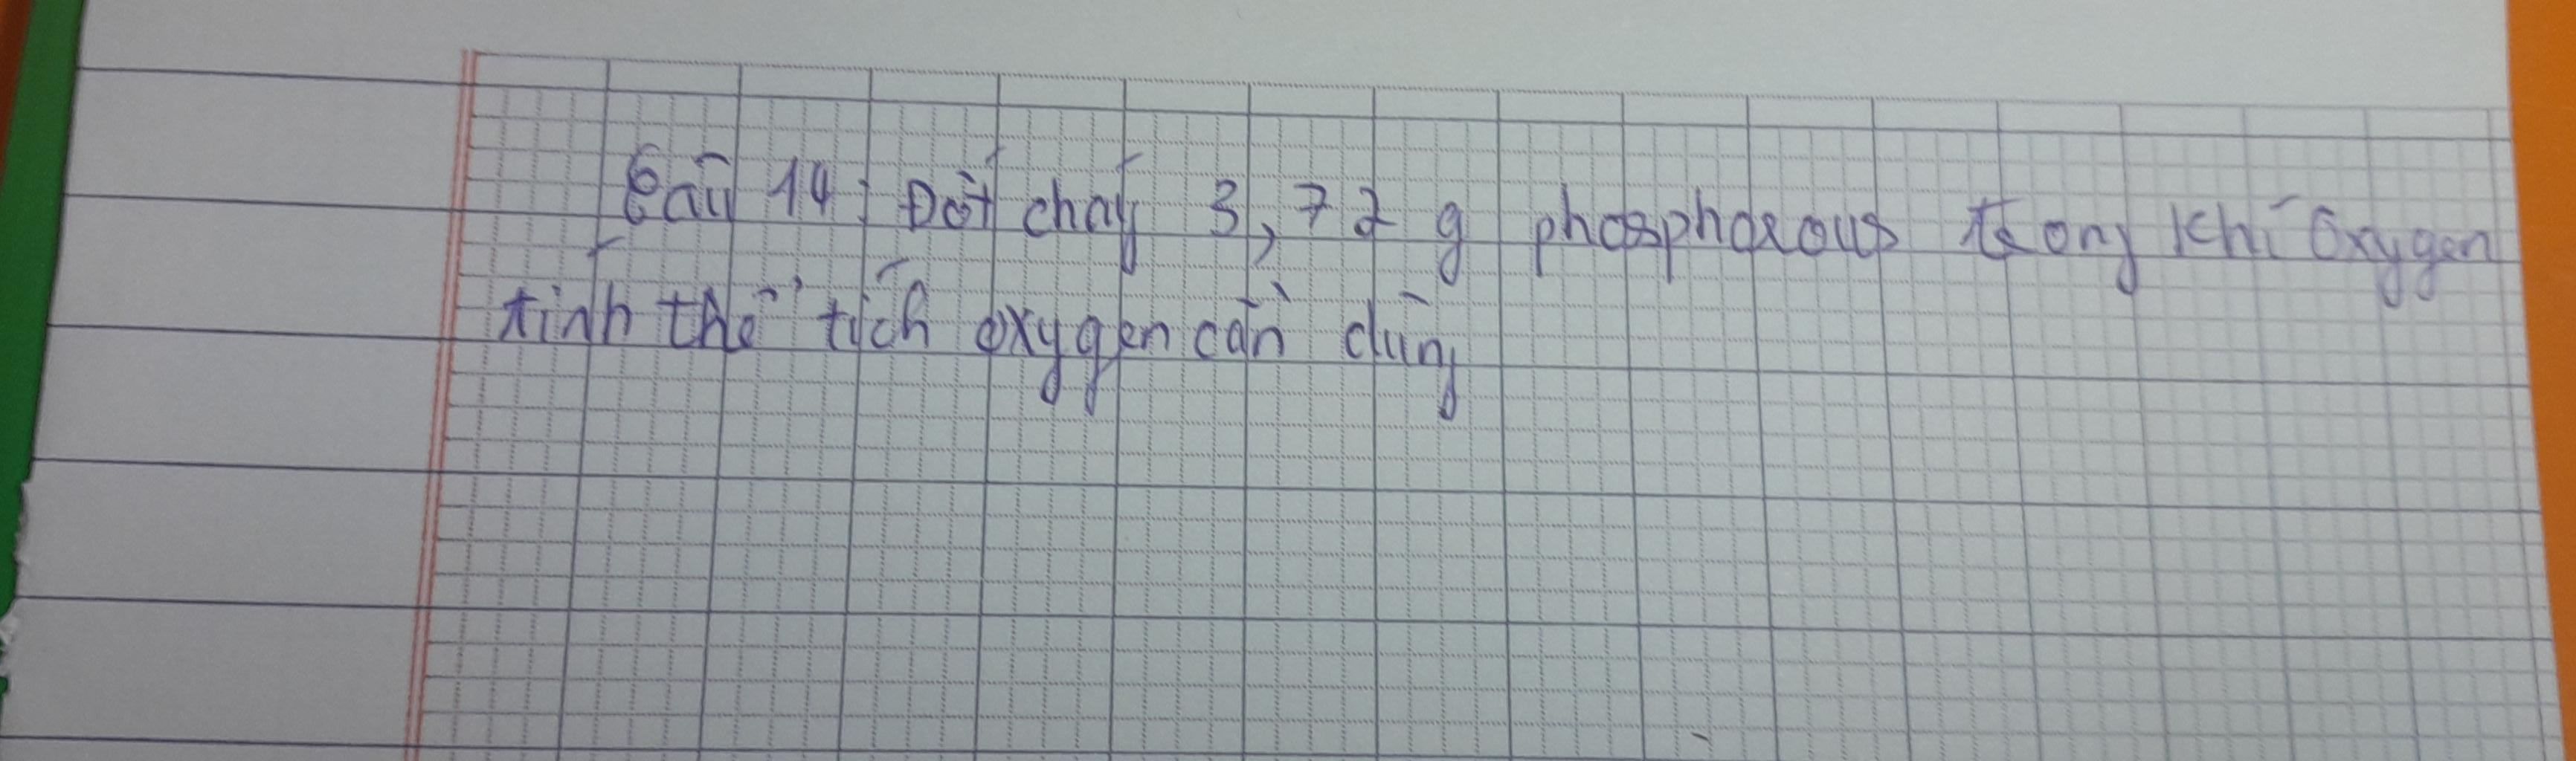 Câu 14: Đốt cháy 3,72 g phosphorous trong khí oxygen
tính thể tích oxygen cần dùng